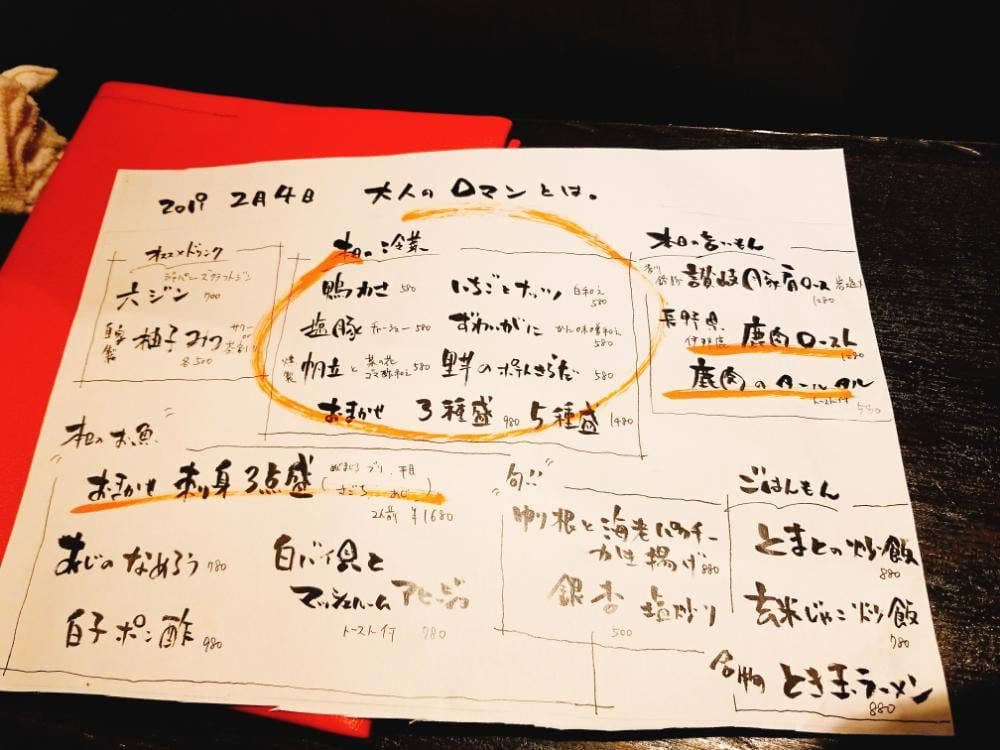 2019 2月4日 大人のロマンとは。
オススメドリンク
ジャパニーズクラフトジン
六ジン 700
自家製 柚子みつ サワー or お茶割り
各500
本日の冷菜
鴨わさ 580
いちごとナッツ 白和え 580
塩豚 チャーシュー 580
ずわいがに かに味噌和え 580
燻製 帆立と 菜の花 ゴマ酢和え 580
里芋のポテトさらだ 580
おまかせ 3種盛 980 5種盛 1480
本日の旨いもん
讃岐 豚肩ロース 1280
長野県 鹿肉ロースト 1280
鹿肉のタールタル
トースト付 580
本日のお魚
おまかせ 刺身3点盛 (めじまぐろ ブリ 平目
さごち あじ)
2人前 ¥1680
あじのなめろう 780
白バイ貝と
マッシュルーム アヒージョ
トースト付 780
白子ポン酢 980
旬!!
ゆり根と海老 パクチー
かき揚げ 880
銀杏 塩炒り
500
ごはんもん
とまとの炒飯
880
玄米じゃこ炒飯
780
名物 とき玉ラーメン
880